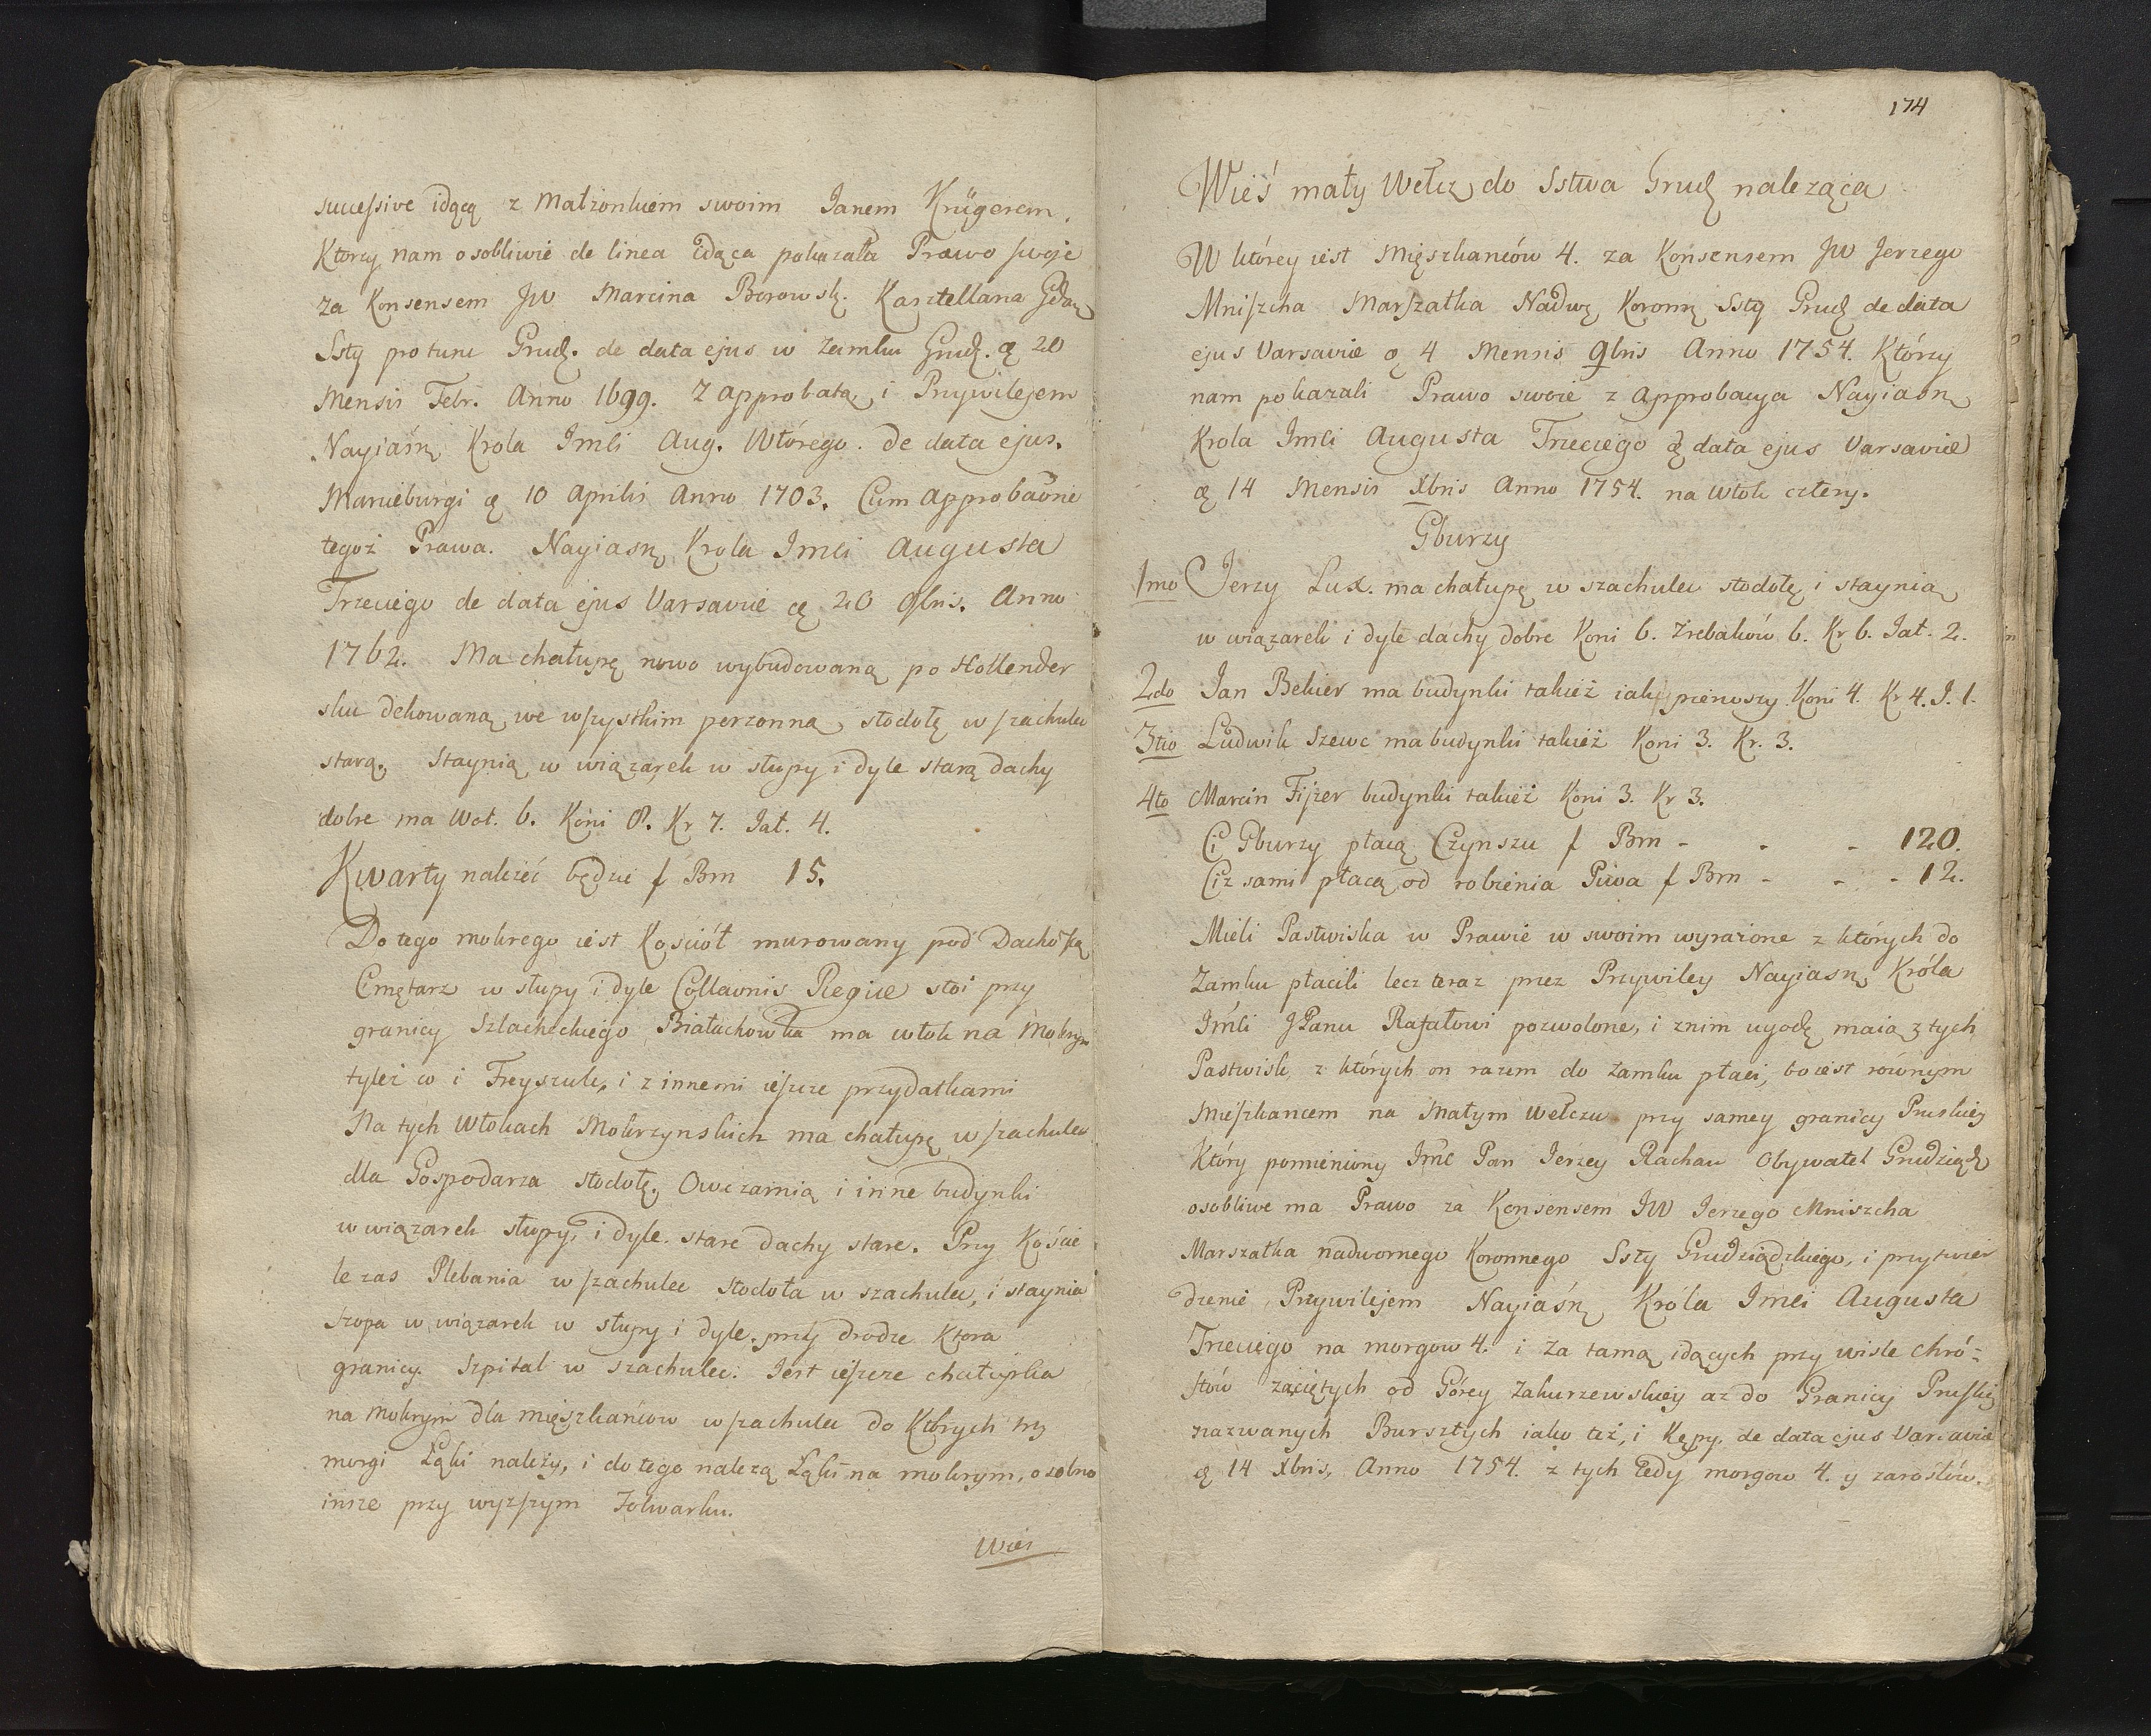 successive idącą z Małżonkiem swoim Janem Krügerem.
Ktorzy nam osobliwie de linea idąca pokazała Prawo swoje
za Konsensem JW Marcina Borowsk. Kasztellana Gdań
Ssty protunc Grudz. de data ejus w Zamku Grudz. d 20
Mensis Febr. Anno 1699. Z approbatą i Przywilejem
Nayiaśn Krola Imci Aug. Wtórego. de data ejus.
Marieburgi d 10 Aprilis Anno 1703. Cum Approbaone
tegoż Prawa. Nayiasn Krola Imci Augusta
Trzeciego de data ejus Varsavie d 20 9bris. Anno
1762. Ma chałupę nowo wybudowaną po Hollender
sku dekowaną we wszystkim porzonną, stodołę w szachulec
starą. Staynią w wiązarek w słupy i dyle starą dachy
dobre ma Woł. 6. Koni 8. Kr 7. Jał. 4.
Kwarty należeć będzie f Brn 15.
Do tego mokrego iest Kościół murowany pod Dachówką
Cmętarz w słupy i dyle Collaonis Regiæ stoi przy
granicy Szlacheckiego Białachowka ma włok na Mokrym
tyleż co i Freyszulc, i z innemi ieszcze przydatkami
Na tych Włokach Mokrzynskich ma chałupę w szachulec
dla Gospodarza stodołę, Owczarnią i inne budynki
w wiązarek słupy, i dyle. stare dachy stare. Przy Koście
le zas Plebania w szachulec stodoła w szachulec, i staynia
szopa w wiązarek w słupy i dyle. przy drodze Ktora
granicy. Szpital w szachulec. Jest ieszcze chałupka
na mokrym dla mięszkańcow w szachulec do Których trzy
morgi Łąki należy, i do tego nalezą Łąki na mokrym, osobno
insze przy wyzszym Folwarku.
Wies
174
Wieś mały Wełcz do Sstwa Grudz naleząca
W którey iest Mięszkanców 4. za Konsensem JW Jerzego
Mniszcha Marszałka Nadw Koronn Ssty Grudz de data
ejus Varsavie d 4 Mensis 9bris Anno 1754. Którzy
nam pokazali Prawo swoie z Approbacya Nayiasn
Krola Imci Augusta Trzeciego d data ejus Varsavie
d 14 Mensis Xbris Anno 1754. na włok cztery.
Gburzy
1mo Jerzy Lux. ma chałupę w szachulec stodołę i staynią
w wiązarek i dyle dachy dobre Koni 6. Zrebaków 6. Kr 6. Jał. 2.
2do Jan Bekier ma budynki takież iak pierwszy Koni 4. Kr 4. J. 1.
3tio Ludwik Szewc ma budynki takież Koni 3. Kr. 3.
4to Marcin Fiszer budynki takież Koni 3. Kr 3.
Ci Gburzy płacą Czynszu f Brn - - - 120.
Ciz sami płacą od robienia Piwa f Brn - - - 12.
Mieli Pastwiska w Prawie w swoim wyrazone z których do
Zamku płacili lecz teraz przez Przywiley Nayiasn Króla
Imci JPanu Rafałowi pozwolone, i znim ugodę maią z tych
Pastwisk z których on razem do zamku płaci, bo iest równym
Mieszkancem na Małym Wełczu przy samey granicy Pruskiey
Który pomieniony Imc Pan Jerzey Rachau Obywatel Grudziądz
osobliwe ma Prawo za Konsensem JW Jerzego Mniszcha
Marszałka nadwornego Koronnego Ssty Grudziądzkiego, i przytwier
dzenie Przywilejem Nayiaśn Króla Imci Augusta
Trzeciego na morgow 4. i Za tamą idących przy wisle chró=
stów zaciętych od Górey Zakurzewskiey az do Granicy Pruskiey
nazwanych Bursztych iako też, i Kępy. de data ejus Varsavie
d 14 Xbris, Anno 1754. z tych tedy morgow 4. y zarosłów.